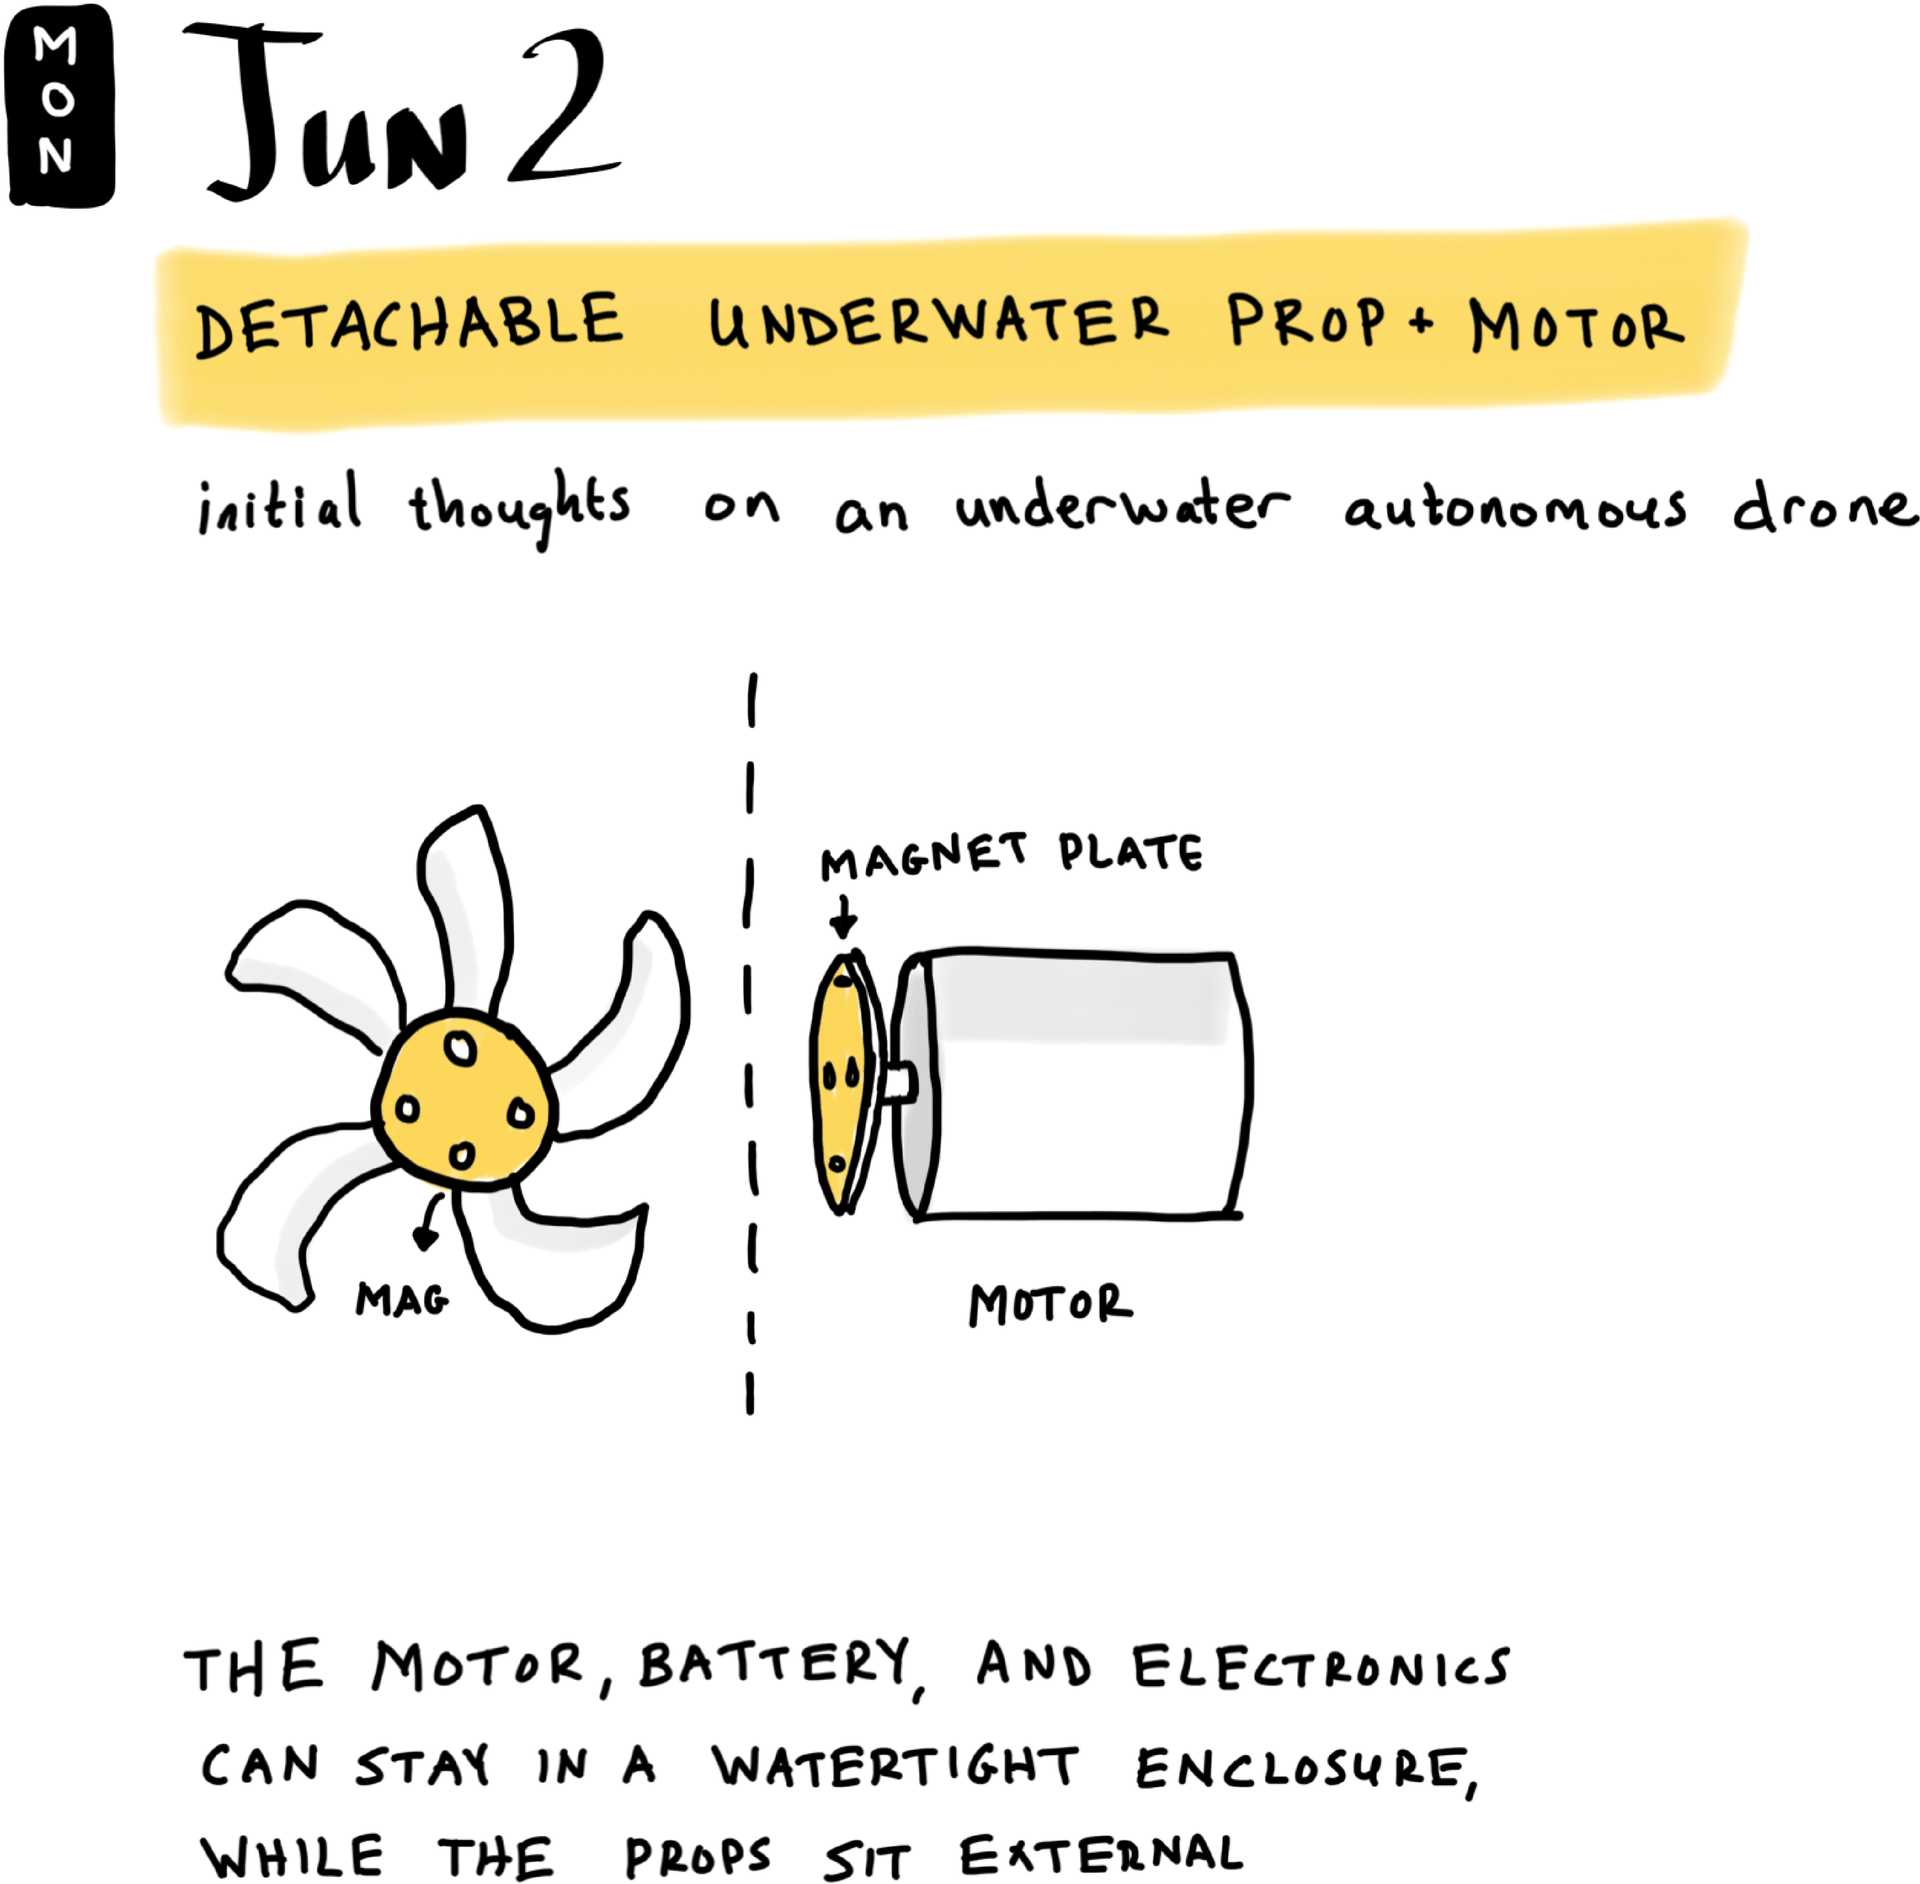 MON
Jun 2
DETACHABLE UNDERWATER PROP + MOTOR
initial thoughts on an underwater autonomous drone
MAGNET PLATE
MAG
MOTOR
THE MOTOR, BATTERY, AND ELECTRONICS
CAN STAY IN A WATERTIGHT ENCLOSURE,
WHILE THE PROPS SIT EXTERNAL